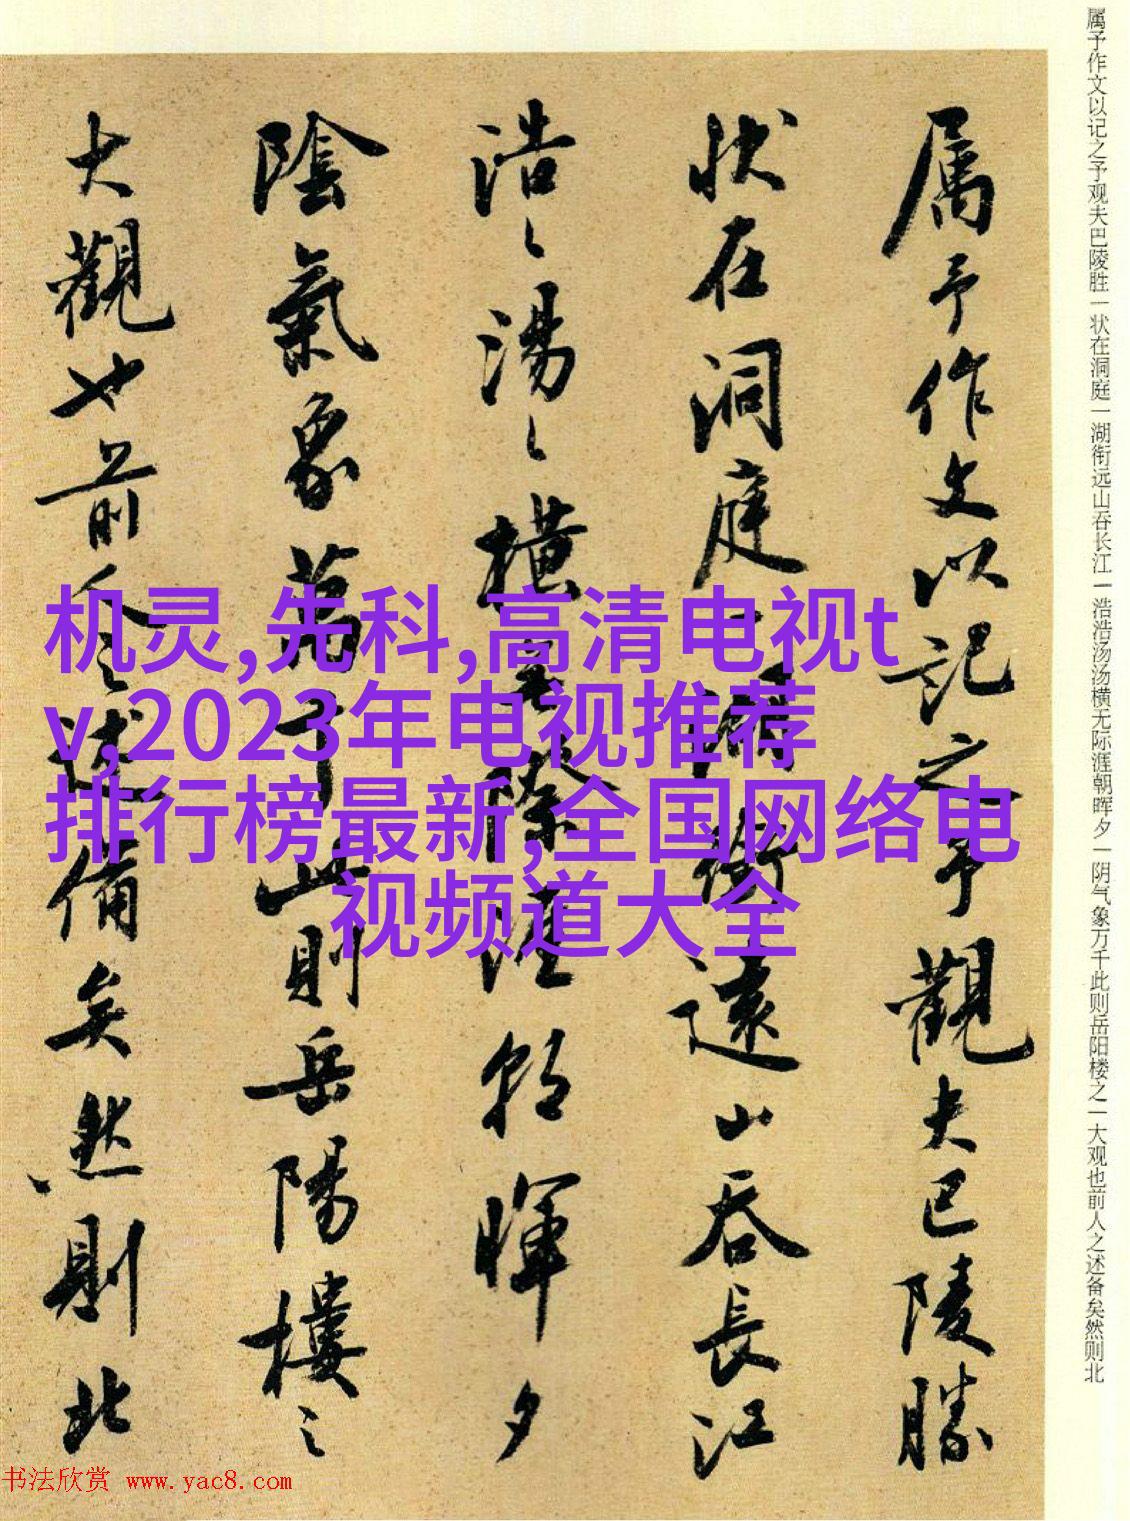 属予作文以记之予观夫巴陵胜一状在洞庭一湖衔远山吞长江一浩浩汤汤横无际涯朝晖夕一阴气象万千此则岳阳楼之一大观也前人之述备矣然则北
属予作文以记之予觀夫巴陵勝
状在洞庭一湖銜遠山吞長江
浩〻湯〻橫無際涯朝暉夕
陰氣象萬千此則岳陽樓之
大觀也前人之述備矣然則北
机灵,先科,高清电视t
v,2023年电视推荐
排行榜最新,全国网络电
视频道大全
书法欣赏 www.yac8.com